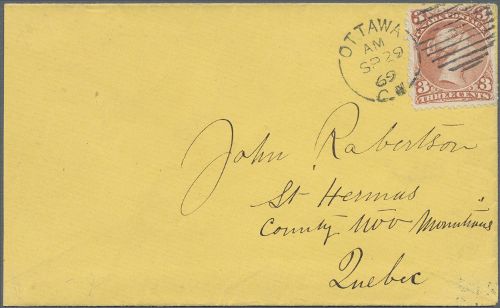 OTTAWA
AM
SP 29
69
C.W
CANADA POSTAGE
3 3
THREE CENTS
John Robertson
St Hermas
County Two Mountains
Quebec